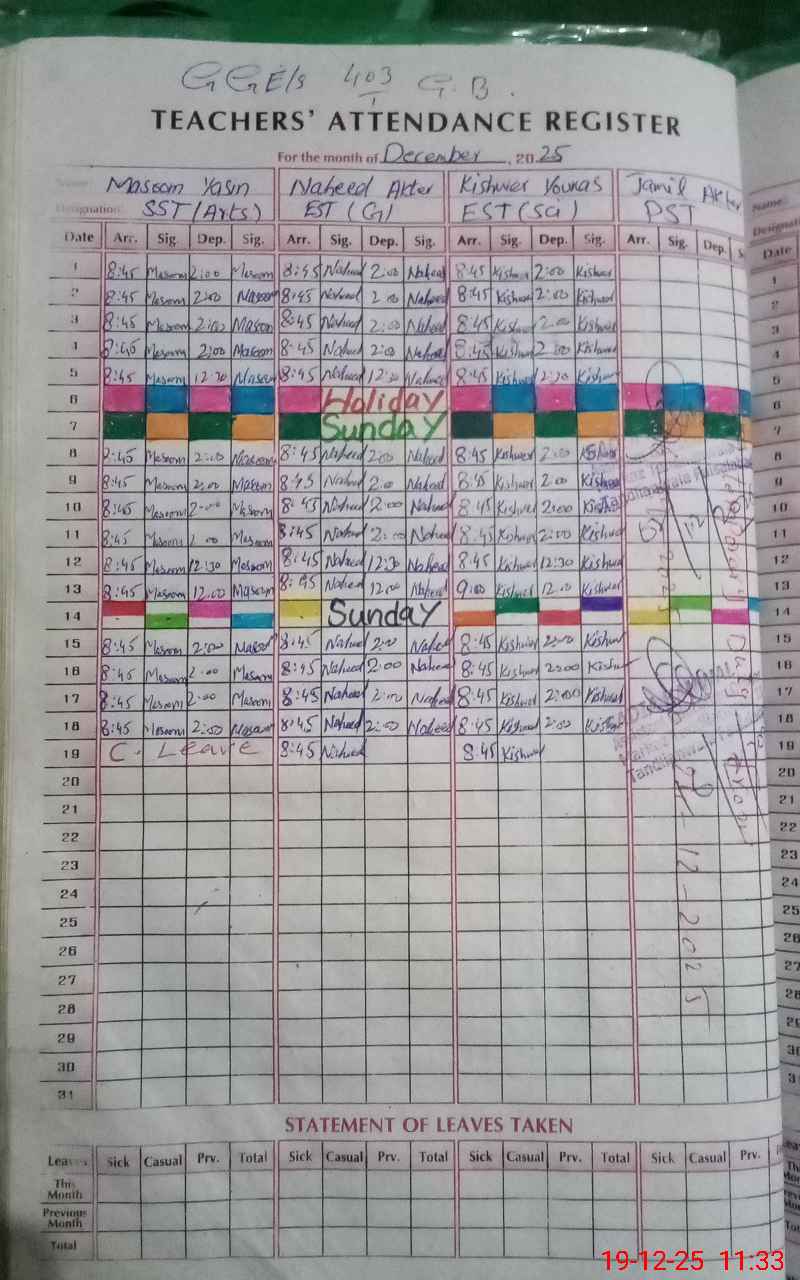 GGE/S 403 G.B.
TEACHERS' ATTENDANCE REGISTER
For the month of December, 2025
Name: Masoom Yasin Naheed Akter Kishwer Younas Jamil Akter Name:
Designation: SST (Arts) EST (G) EST (Sci) PST
Date Arr. Sig. Dep. Sig. Arr. Sig. Dep. Sig. Arr. Sig. Dep. Sig. Arr. Sig. Dep. Date
1 8:45 Masoom 2:00 Masoom 8:45 Naheed 2:00 Naheed 8:45 Kishwer 2:00 Kishwer 1
2 8:45 Masoom 2:00 Masoom 8:45 Naheed 2:00 Naheed 8:45 Kishwer 2:00 Kishwer 2
3 8:45 Masoom 2:00 Masoom 8:45 Naheed 2:00 Naheed 8:45 Kishwer 2:00 Kishwer 3
4 8:45 Masoom 2:00 Masoom 8:45 Naheed 2:00 Naheed 8:45 Kishwer 2:00 Kishwer 4
5 8:45 Masoom 12:30 Masoom 8:45 Naheed 12:30 Naheed 8:45 Kishwer Kishwer 5
6 Holiday 6
7 Sunday 7
8 8:45 Masoom 2:00 Masoom 8:45 Naheed 2:00 Naheed 8:45 Kishwer 2:00 Kishwer 8
9 8:45 Masoom 2:00 Masoom 8:45 Naheed 2:00 Naheed 8:45 Kishwer 2:00 Kishwer 9
10 8:45 Masoom 2:00 Masoom 8:45 Naheed 2:00 Naheed 8:45 Kishwer 2:00 Kishwer 10
11 8:45 Masoom 2:00 Masoom 8:45 Naheed 2:00 Naheed 8:45 Kishwer 2:00 Kishwer 11
12 8:45 Masoom 12:30 Masoom 8:45 Naheed 12:30 Naheed 8:45 Kishwer 12:30 Kishwer 12
13 8:45 Masoom 12:00 Masoom 8:45 Naheed 12:00 Naheed 9:00 Kishwer 12:00 Kishwer 13
14 Sunday 14
15 8:45 Masoom 2:00 Masoom 8:45 Naheed 2:00 Naheed 8:45 Kishwer 2:00 Kishwer 15
16 8:45 Masoom 2:00 Masoom 8:45 Naheed 2:00 Naheed 8:45 Kishwer 2:00 Kishwer 16
17 8:45 Masoom 2:00 Masoom 8:45 Naheed 2:00 Naheed 8:45 Kishwer 2:00 Kishwer 17
18 8:45 Masoom 2:00 Masoom 8:45 Naheed 2:00 Naheed 8:45 Kishwer 2:00 Kishwer 18
19 C. Leave 8:45 Naheed 8:45 Kishwer 19
20 20
21 21
22 22
23 23
24 24
25 25
26 26
27 27
28 28
29 29
30 30
31
Duty
12-2025
STATEMENT OF LEAVES TAKEN
Leaves Sick Casual Prv. Total Sick Casual Prv. Total Sick Casual Prv. Total Sick Casual Prv.
This Month
Previous Month
Total
19-12-25 11:33